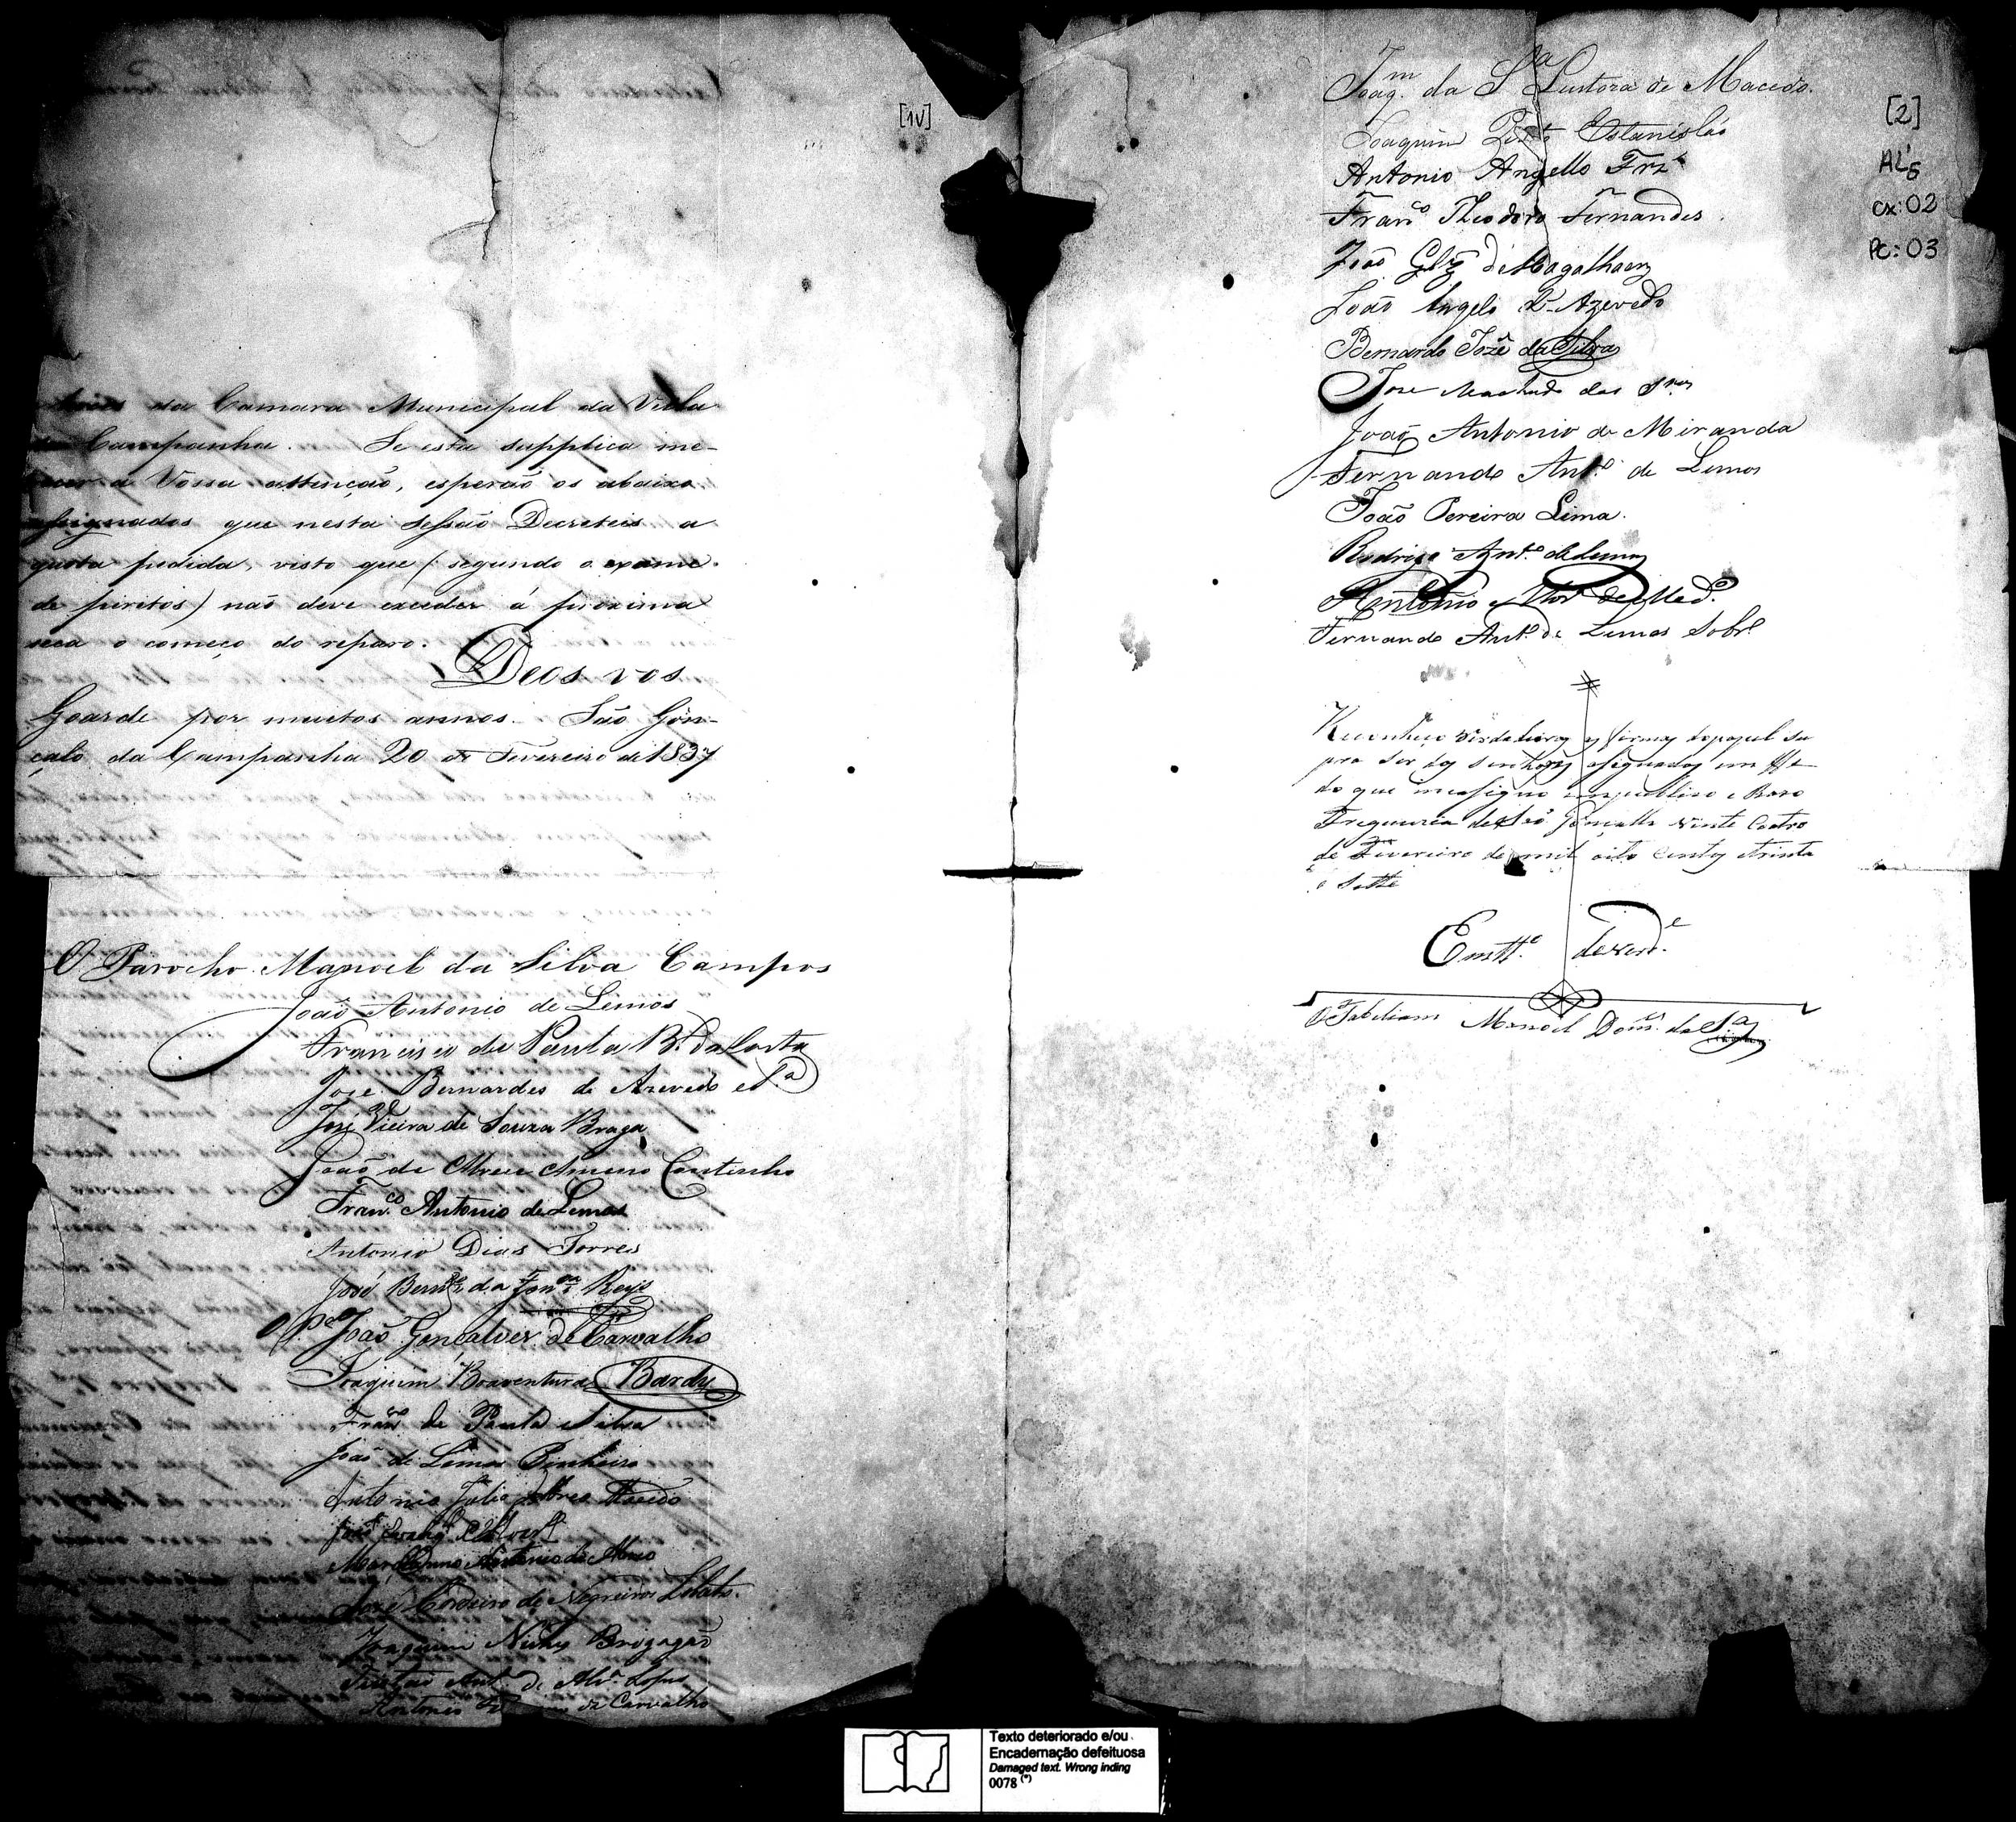 [1V]
da Camara Municipal da Villa
Campanha. Se esta supplica me-
a Vossa attenção, esperão os abaixo
assignados que nesta Sessão Decreteis a
quota pedida, visto que (segundo o exame
de piritos) não deve exceder á proxima
seca o começo do reparo.
Deos vos
Goarde por muitos annos. São Gon-
çalo da Campanha 20 de Fevereiro de 1837
O Parocho Manoel da Silva Campos
João Antonio de Lemos
Francisco de Paula B. da Costa
Jose Bernardes de Azevedo e S.ª
José Vieira de Souza Braga
João de Coutinho
Fran.co Antonio de Lemos
Antonio Dias Torres
José da Fon.ca Reys
O P.e João Gonçalves de Carvalho
Joaquim Boaventura Bardy
Fran.co de Paula e Silva
João de Lemos Pinheiro
Antonio Julio
José
Antonio de Abreo
José Cordeiro de Negreiros Lobato.
Joaquim Nunes Brigagão
Ant.o de Lopes
Antonio de Carvalho
[2]
AL6
cx: 02
PC: 03
Joaq.m da S.a Lustoza de Macedo.
Joaquim Estanisláo
Antonio Angello Frz
Fran.co Theodoro Fernandes
João Glz de Magalhaens
João Angelo d'Azevedo
Bernardo Jozé da Silva
Jose Machado das
João Antonio de Miranda
Fernando Ant.o de Lemos
João Pereira Lima.
Rodrigo Ant.o de Lemos
Antonio de Med.o
Fernando Ant.o de Lemos Sobr.o
Reconheço verdadeiras as firmas do papel su
pra ser dos senhores asignados em fé
do que me asigno em publico e Razo
Freguezia de São Gonçallo vinte coatro
de Fevereiro de mil oito centos e trinta
e Sette
Em tt.o de verd.e
O Tabeliam Manoel Dom.es da S.a
Texto deteriorado e/ou
Encadernação defeituosa
Damaged text. Wrong inding
0078 (*)